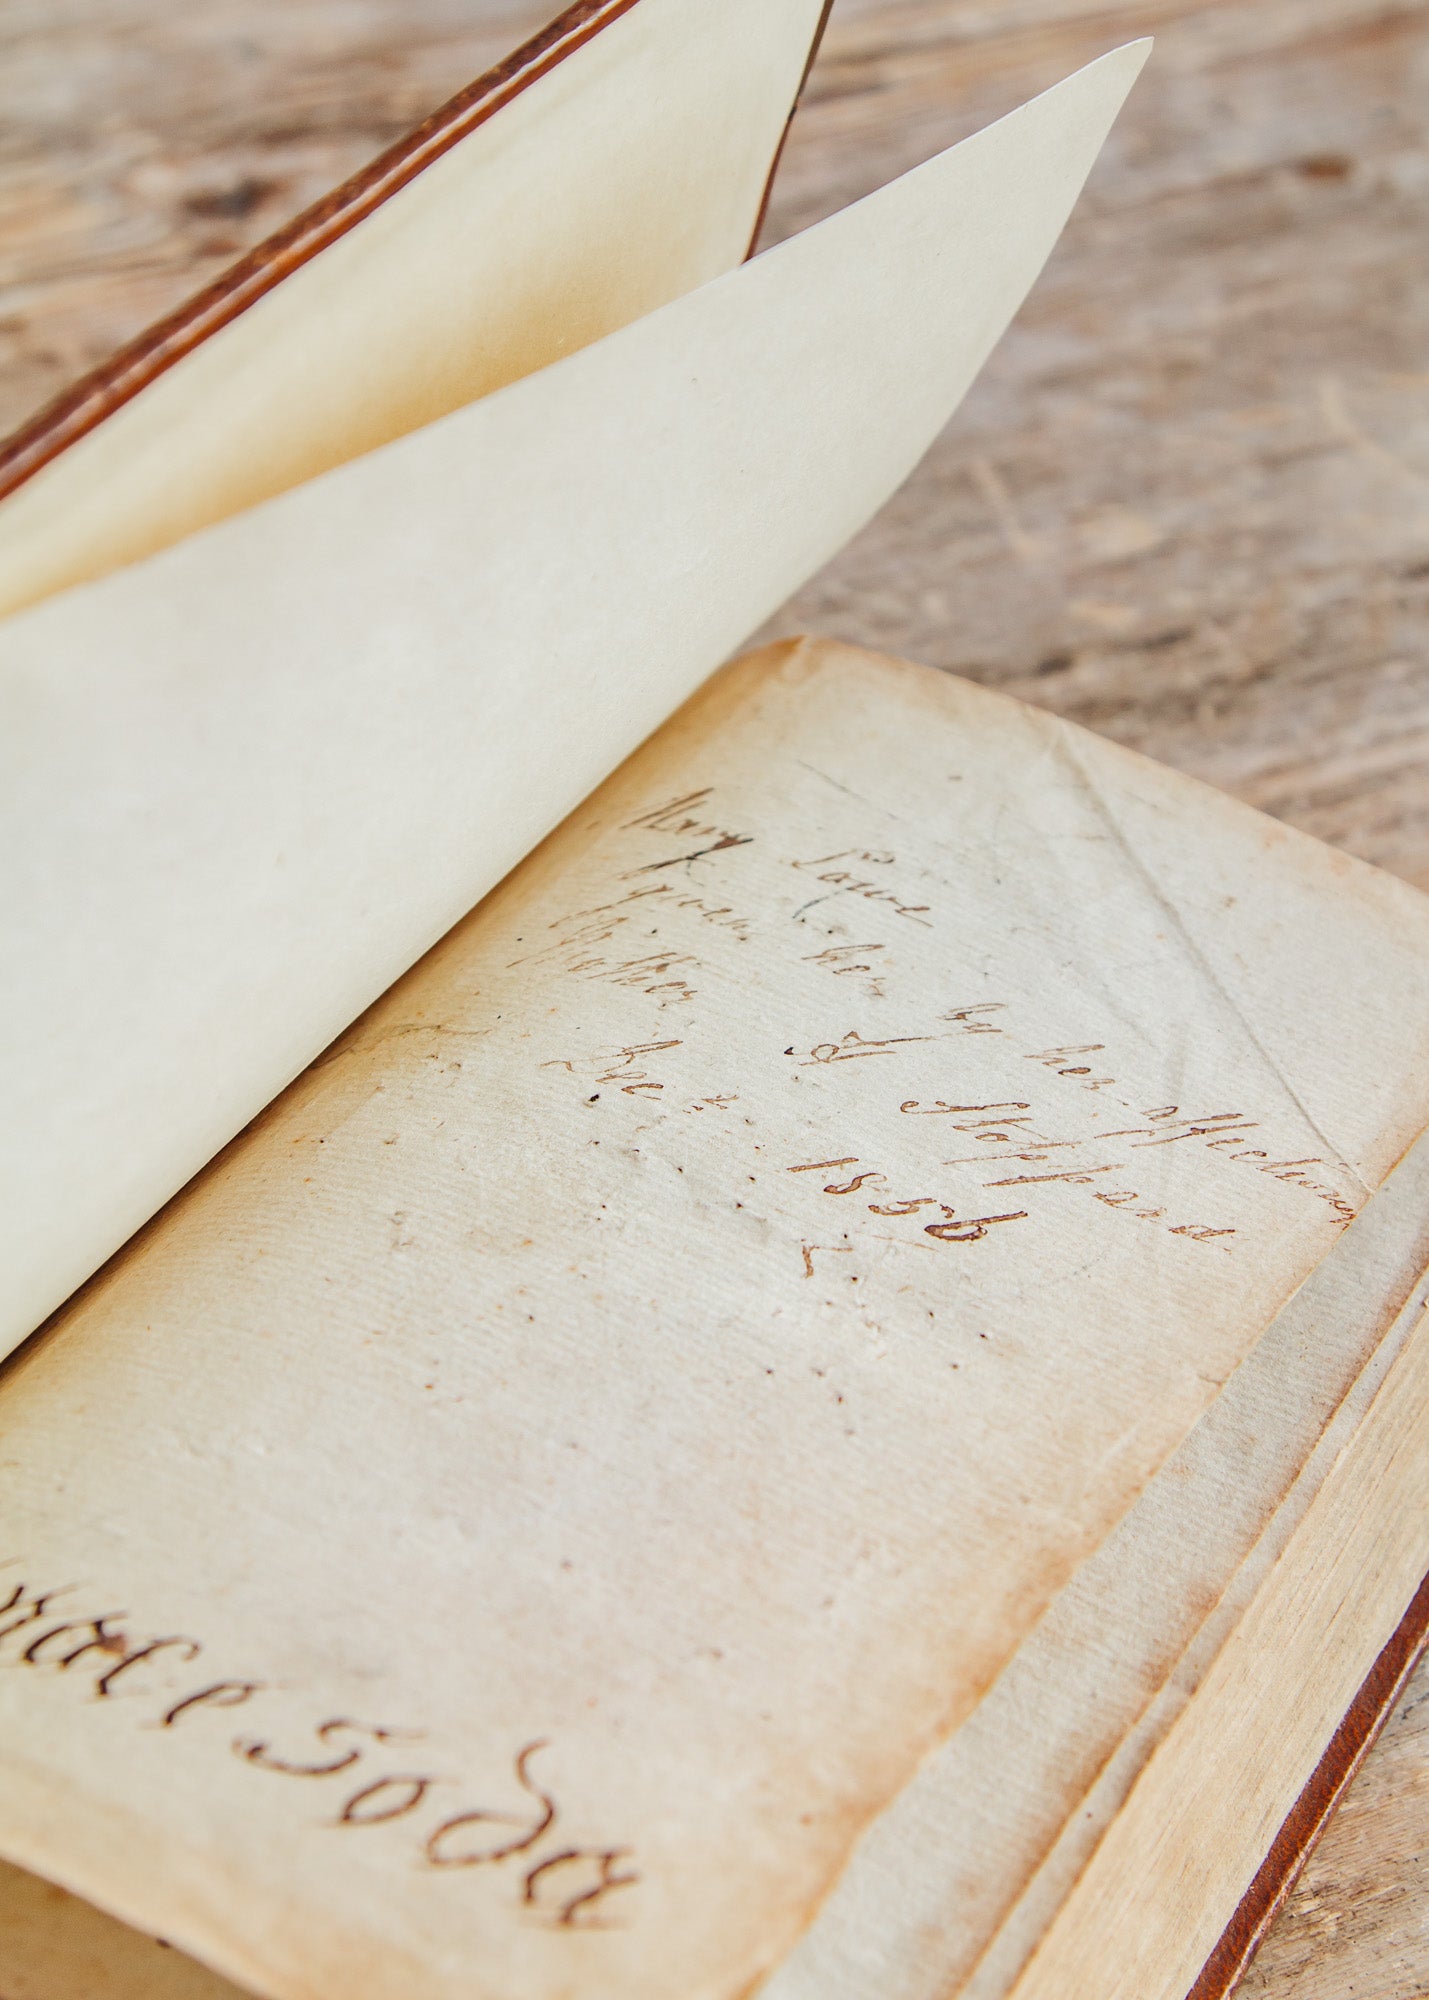 Mary Lowe
given her by her affectionate
Mother A Stoppard.
Decr 1856
Soda